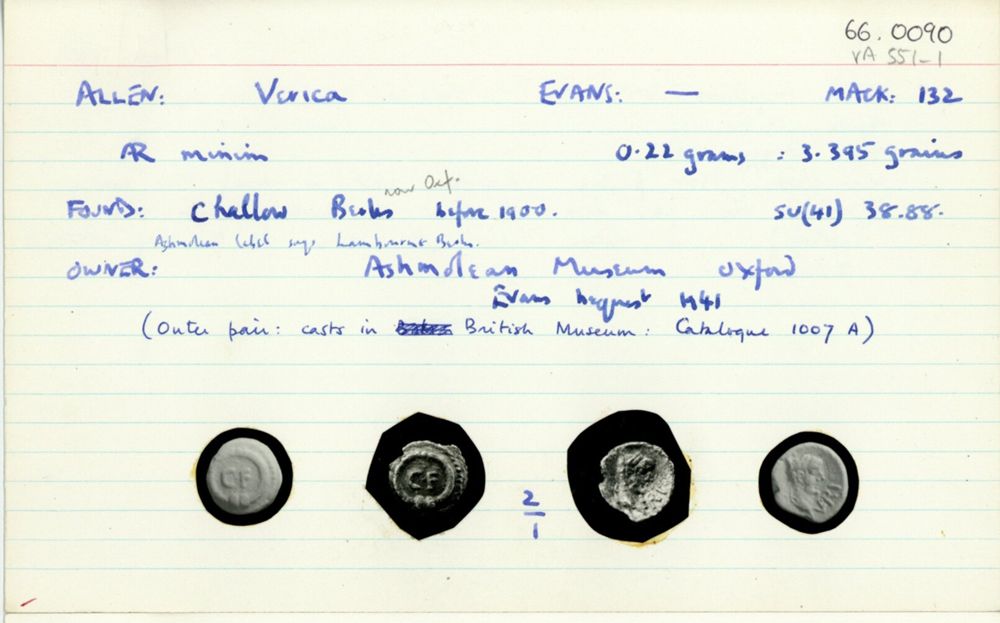 66.0090
VA 551-1
ALLEN: Verica EVANS: — MACK: 132
AR minim 0.22 grams : 3.395 grains
now Oxf.
FOUND: Challow Berks before 1900. SU(41) 38.88.
Ashmolean label says Lambourne Berks.
OWNER: Ashmolean Museum Oxford
Evans bequest 1941
(Outer pair: casts in British Museum: Catalogue 1007 A)
CF
CF
2
1
VIRI